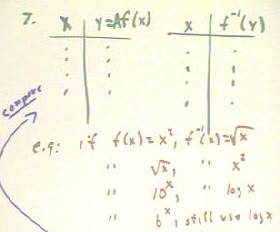 7. x | y=Af(x) x | f⁻¹(y)
compare
e.g: if f(x)=x², f⁻¹(x)=√x
" √x, " x²
" 10ˣ, " log x
" 6ˣ, still use log x